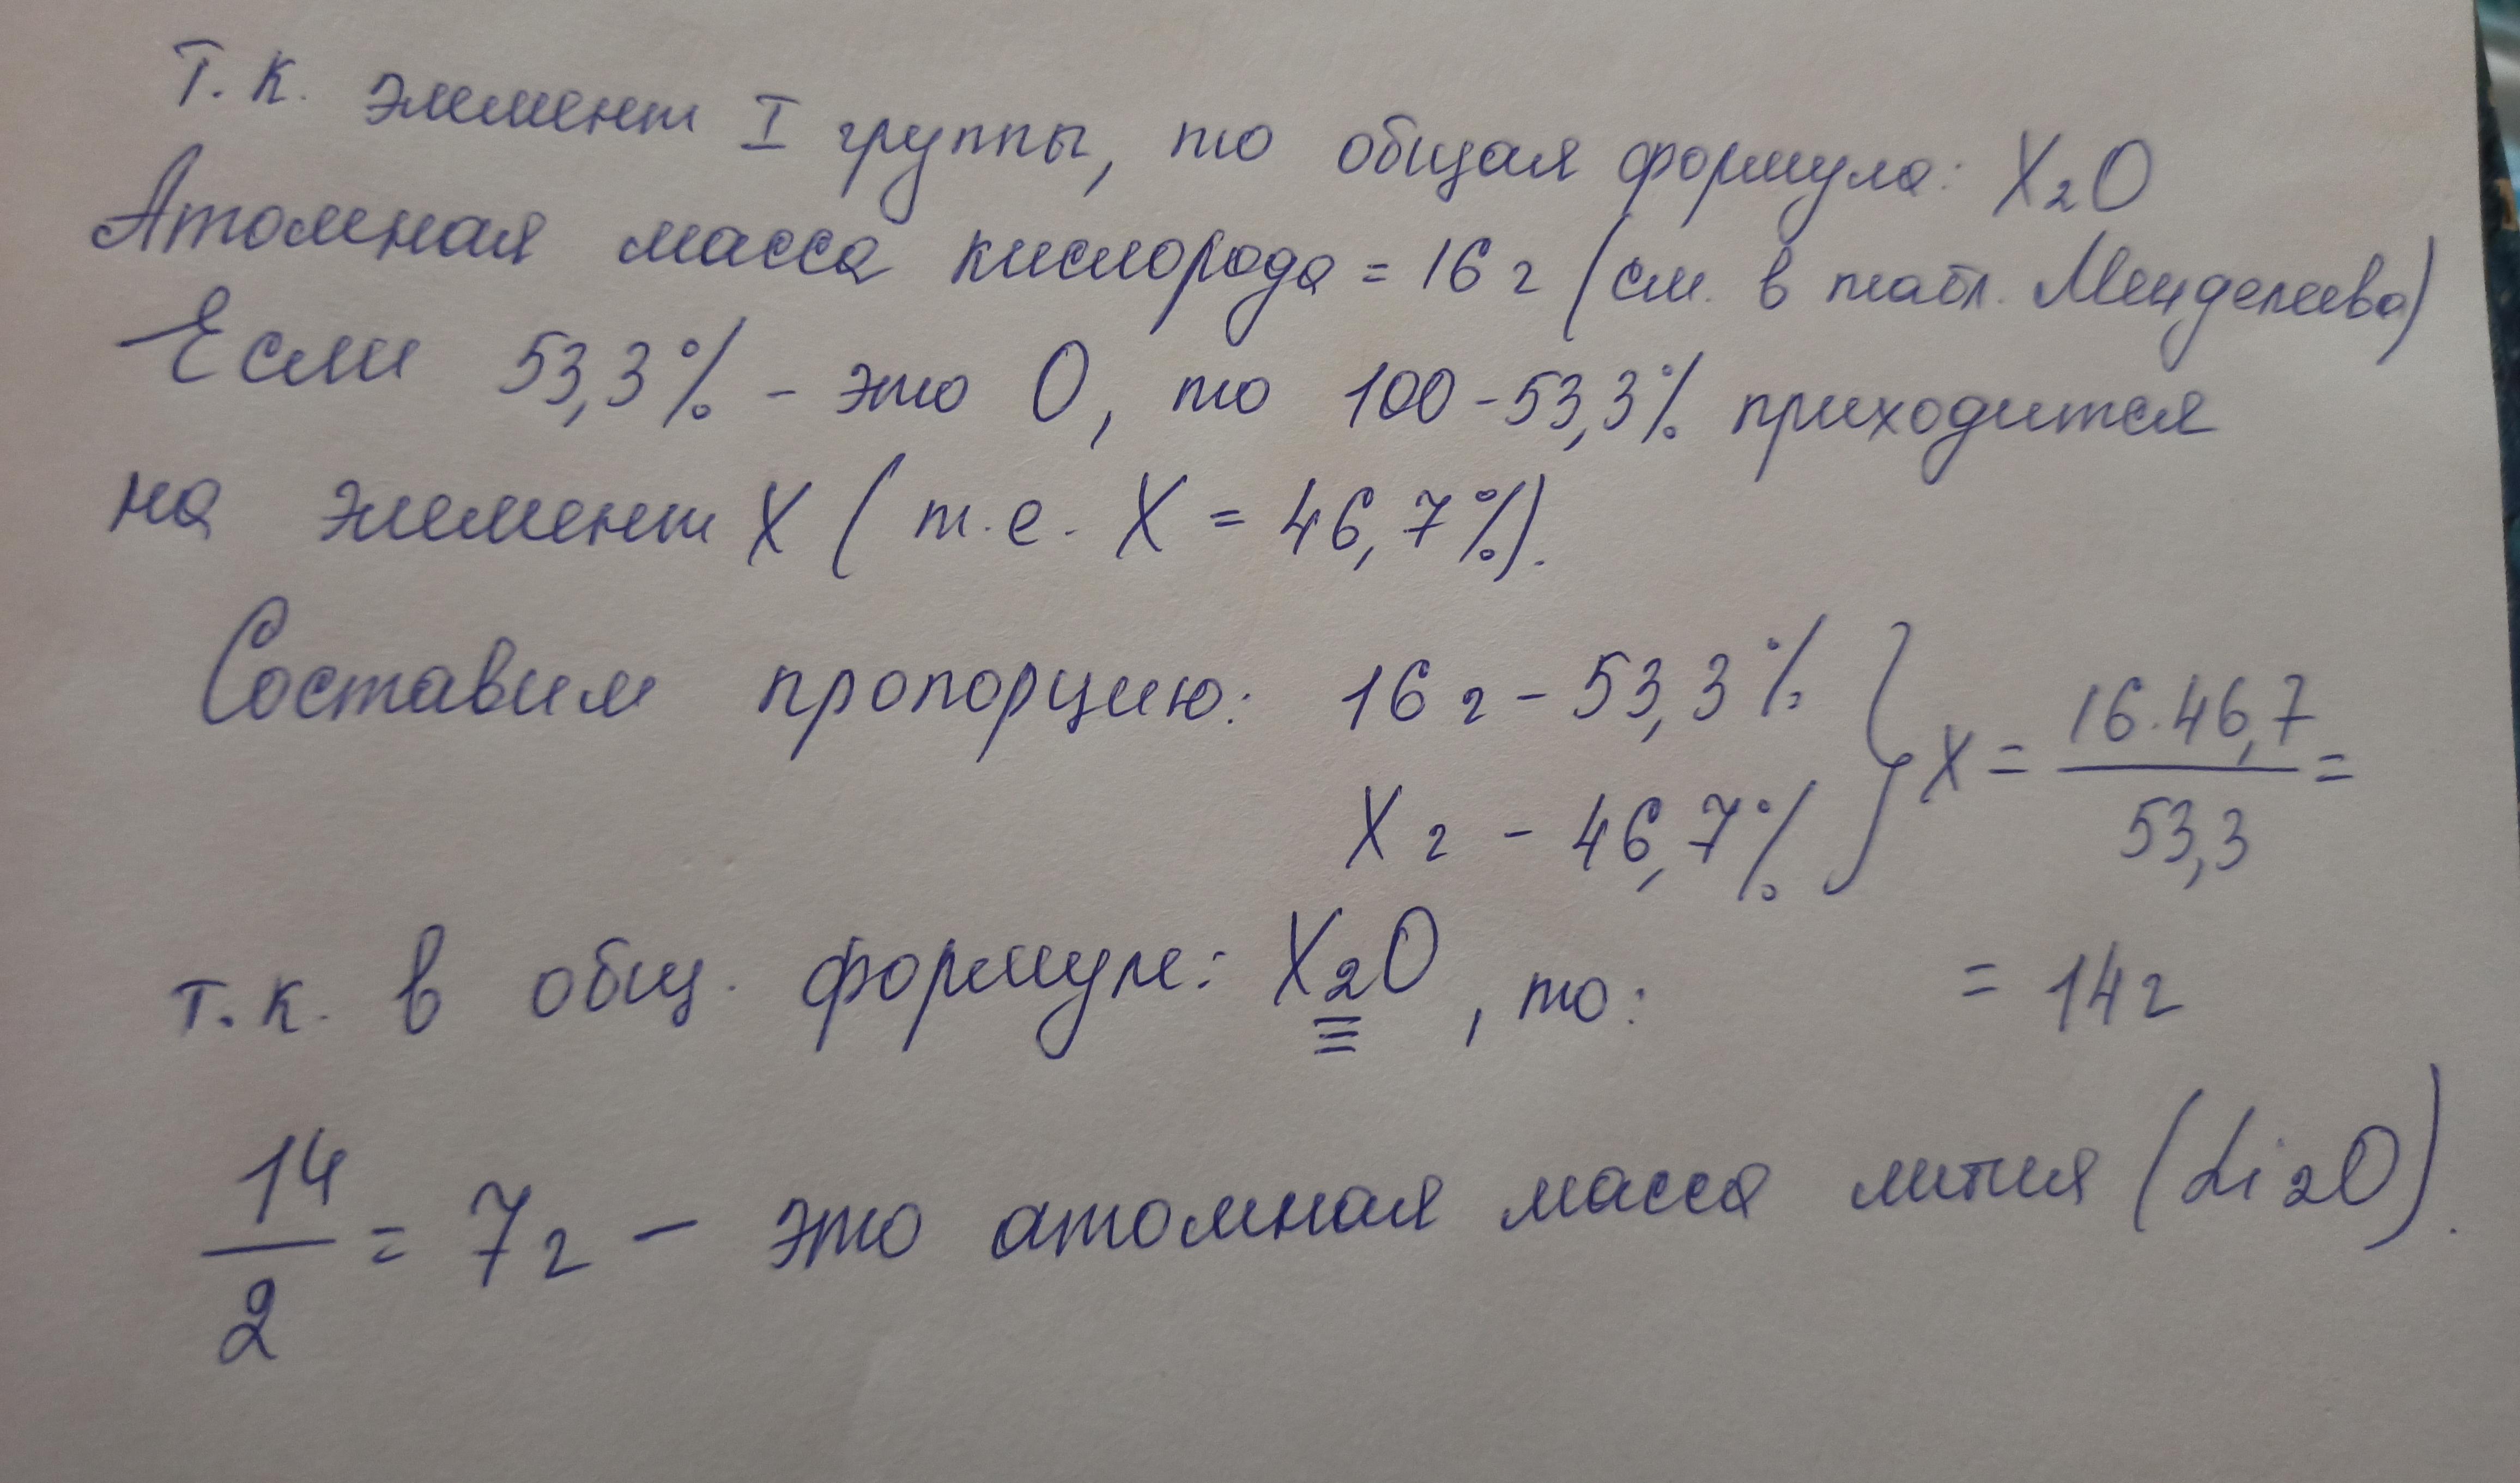 т.к. элемент I группы, то общая формула: X₂O
Атомная масса кислорода = 16 г (см. в табл. Менделеева)
Если 53,3% - это O, то 100-53,3% приходится
на элемент X (т.е. X = 46,7%).
Составим пропорцию: 16 г - 53,3% } X = 16·46,7 / 53,3 =
X г - 46,7%
т.к. в общ. формуле: X₂O, то: = 14 г
14/2 = 7 г - это атомная масса лития (Li₂O).